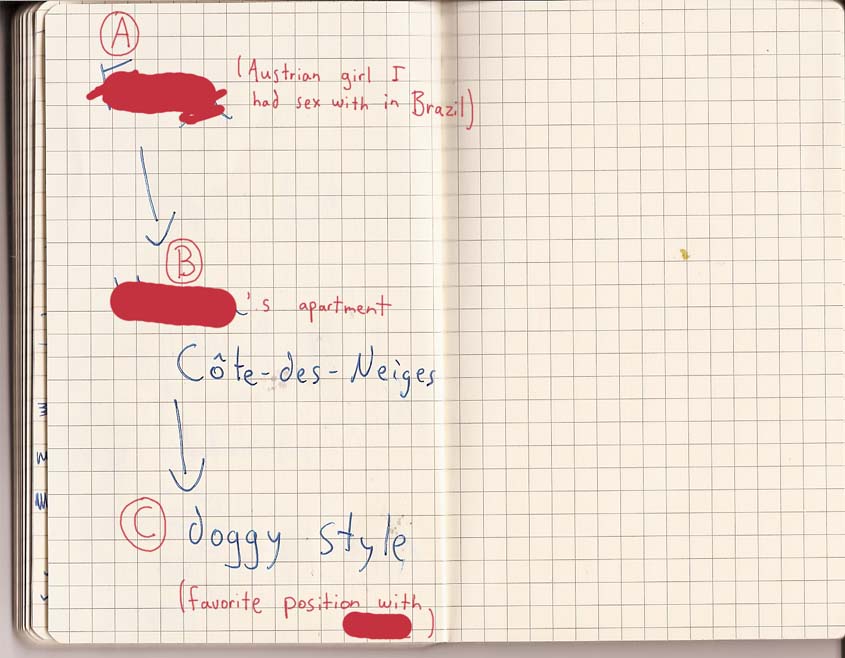 A
(Austrian girl I
had sex with in Brazil)
B
's apartment
Côte-des-Neiges
C doggy style
(favorite position with
)